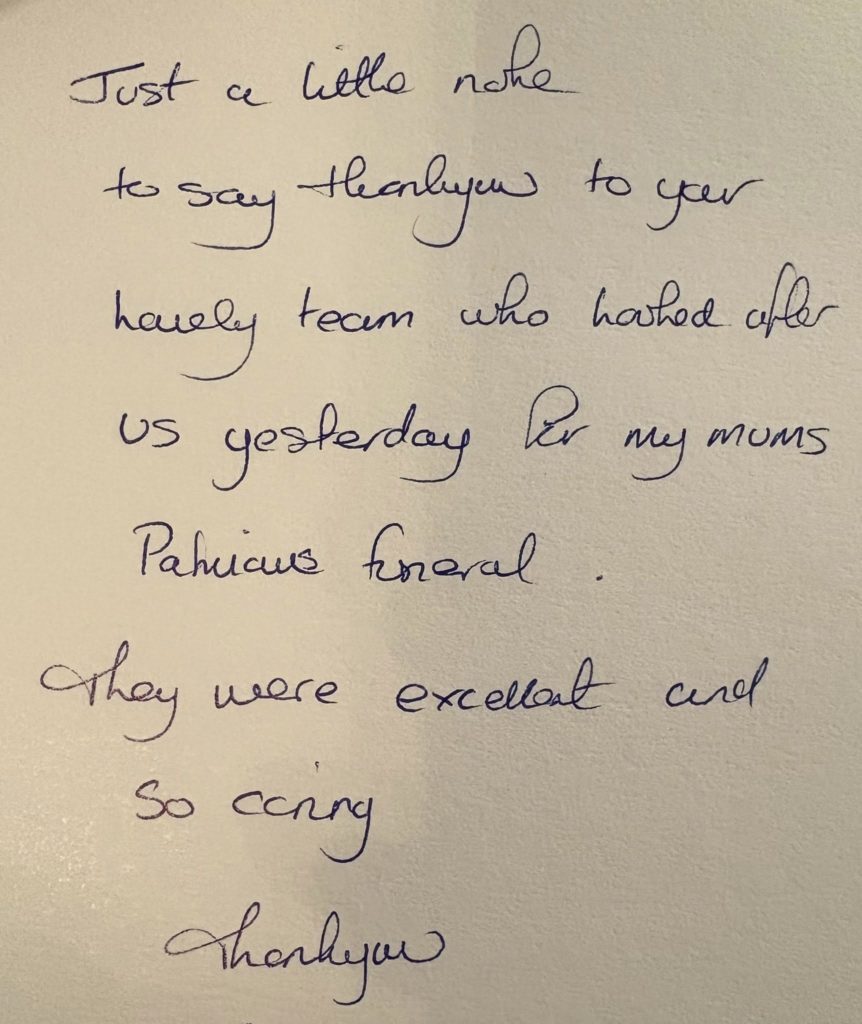 Just a little note
to say thankyou to your
lovely team who looked after
us yesterday for my mums
Patricia's funeral .
They were excellent and
so caring
Thankyou